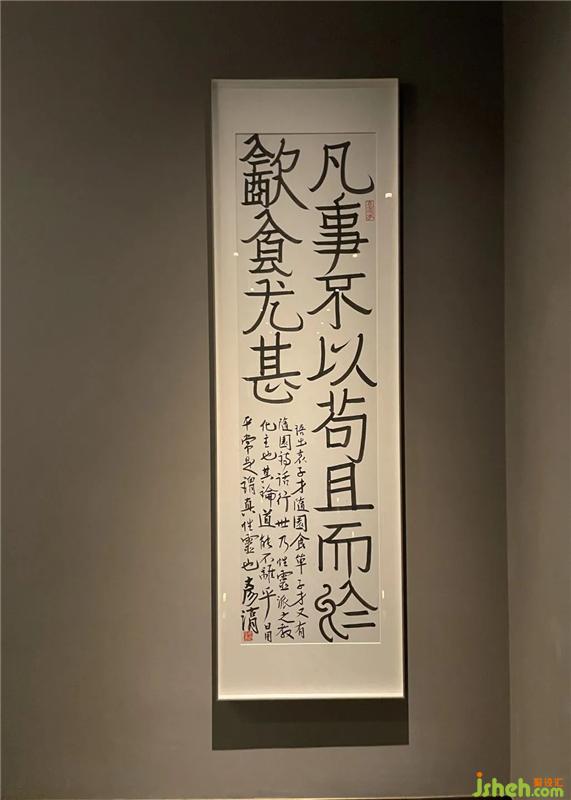 凡事不以苟且而於
㱃食尤甚
語出袁子才隨園食单子才又有
隨園詩話行世乃性靈派之教
化主也其論道能不離乎日用
平常是謂真性靈也
jsheh.com